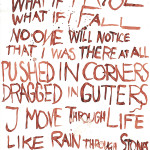 WHAT IF I
WHAT IF I FALL
NO ONE WILL NOTICE
THAT I WAS THERE AT ALL
PUSHED IN CORNERS
DRAGGED IN GUTTERS
I MOVE THROUGH LIFE
LIKE RAIN THROUGH STONES